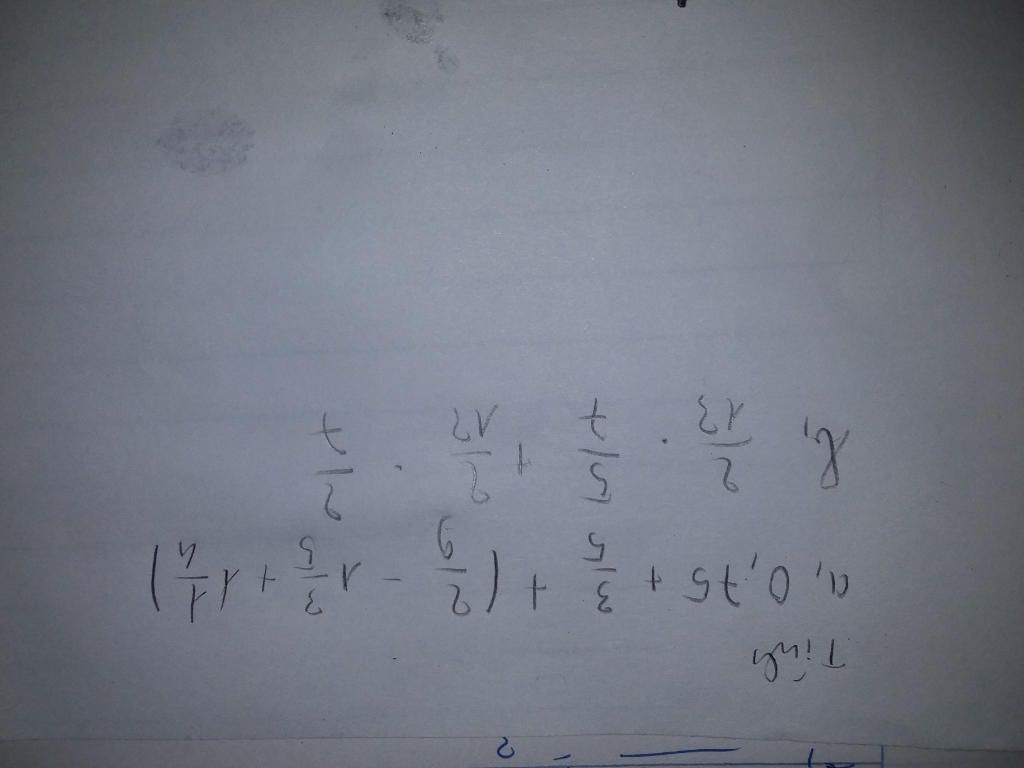 Tính
a, 0,75 + 3/5 + (2/9 - 1 3/5 + 1 1/4)
b, 2/13 . 5/7 + 2/12 . 2/7